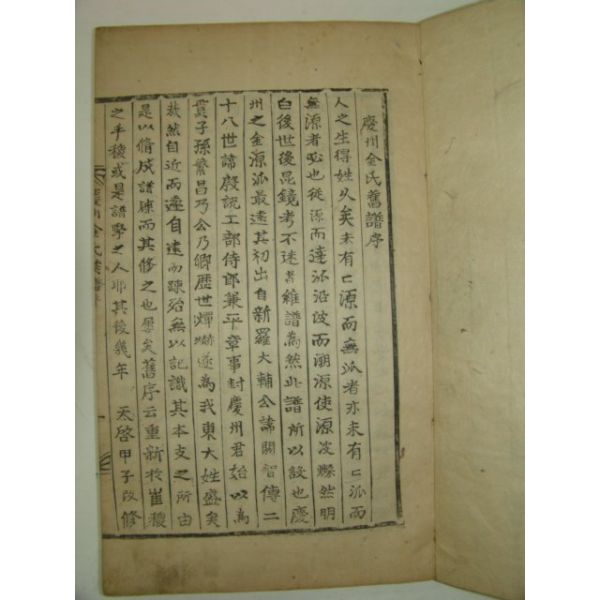 慶州金氏舊譜序
人之生得姓久矣未有亡源而無派者亦未有亡派而
無源者必也從源而達派沿波而溯源使源派瞭然明
白後世後昆鏡考不迷者維譜為然此譜所以設也慶
州之金源派最遠其初出自新羅大輔公諱閼智傳二
十八世諱殷說工部侍郎兼平章事封慶州君始以為
貫子孫繁昌乃公乃卿歷世燀爀遂為我東大姓盛矣
哉然自近而遠自遠而踈殆無以記識其本支之所由
是以脩成譜牒而其修之也屢矣舊序云重新於崔稷
之手稷或是譜學之人耶其後幾年 天啓甲子改修
慶州金氏舊譜序